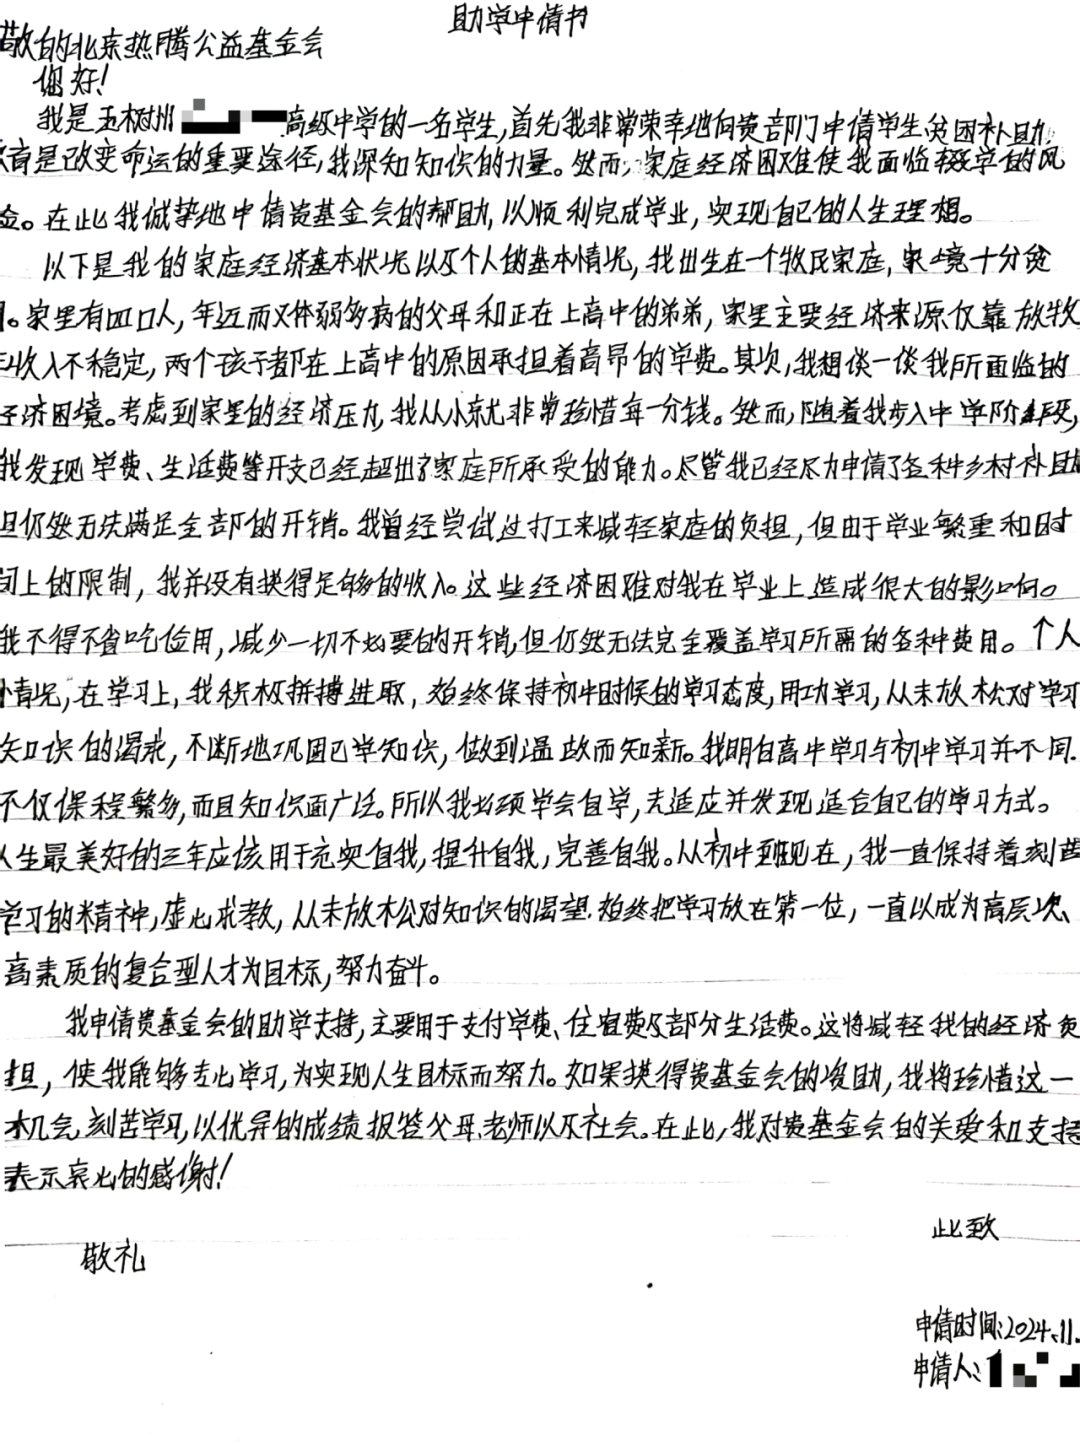 助学申请书
敬的北京热腾公益基金会
您好!
我是玉树州 高级中学的一名学生,首先我非常荣幸地向贵部门申请学生贫困补助,
育是改变命运的重要途径,我深知知识的力量。然而,家庭经济困难使我面临辍学的风
险。在此我诚挚地申请贵基金会的帮助,以顺利完成学业,实现自己的人生理想。
以下是我的家庭经济基本状况以及个人的基本情况,我出生在一个牧民家庭,家境十分贫
。家里有四口人,年迈而又体弱多病的父母和正在上高中的弟弟,家里主要经济来源仅靠放牧
收入不稳定,两个孩子都在上高中的原因承担着高昂的学费。其次,我想谈一谈我所面临的
经济困境。考虑到家里的经济压力,我从小就非常珍惜每一分钱。然而,随着我步入中学阶段,
我发现学费、生活费等开支已经超出了家庭所承受的能力。尽管我已经尽力申请了各种乡村补助
但仍然无法满足全部的开销。我曾经尝试过打工来减轻家庭的负担,但由于学业繁重和时
间上的限制,我并没有获得足够的收入。这些经济困难对我在学业上造成很大的影响。
我不得不省吃俭用,减少一切不必要的开销,但仍然无法完全覆盖学习所需的各种费用。个人
情况,在学习上,我积极拼搏进取,始终保持初中时候的学习态度,用功学习,从未放松对学习
知识的渴求,不断地巩固已学知识,做到温故而知新。我明白高中学习与初中学习并不同.
不仅课程繁多,而且知识面广泛。所以我必须学会自学,去适应并发现适合自己的学习方式。
人生最美好的三年应该用于充实自我,提升自我,完善自我。从初中到现在,我一直保持着刻苦
学习的精神,虚心求教,从未放松对知识的渴望.始终把学习放在第一位,一直以成为高层次、
高素质的复合型人才为目标,努力奋斗。
我申请贵基金会的助学支持,主要用于支付学费、住宿费及部分生活费。这将减轻我的经济负
担,使我能够专心学习,为实现人生目标而努力。如果获得贵基金会的资助,我将珍惜这一
机会,刻苦学习,以优异的成绩报答父母、老师以及社会。在此,我对贵基金会的关爱和支持
表示衷心的感谢!
此致
敬礼
申请时间:2024.11.
申请人: